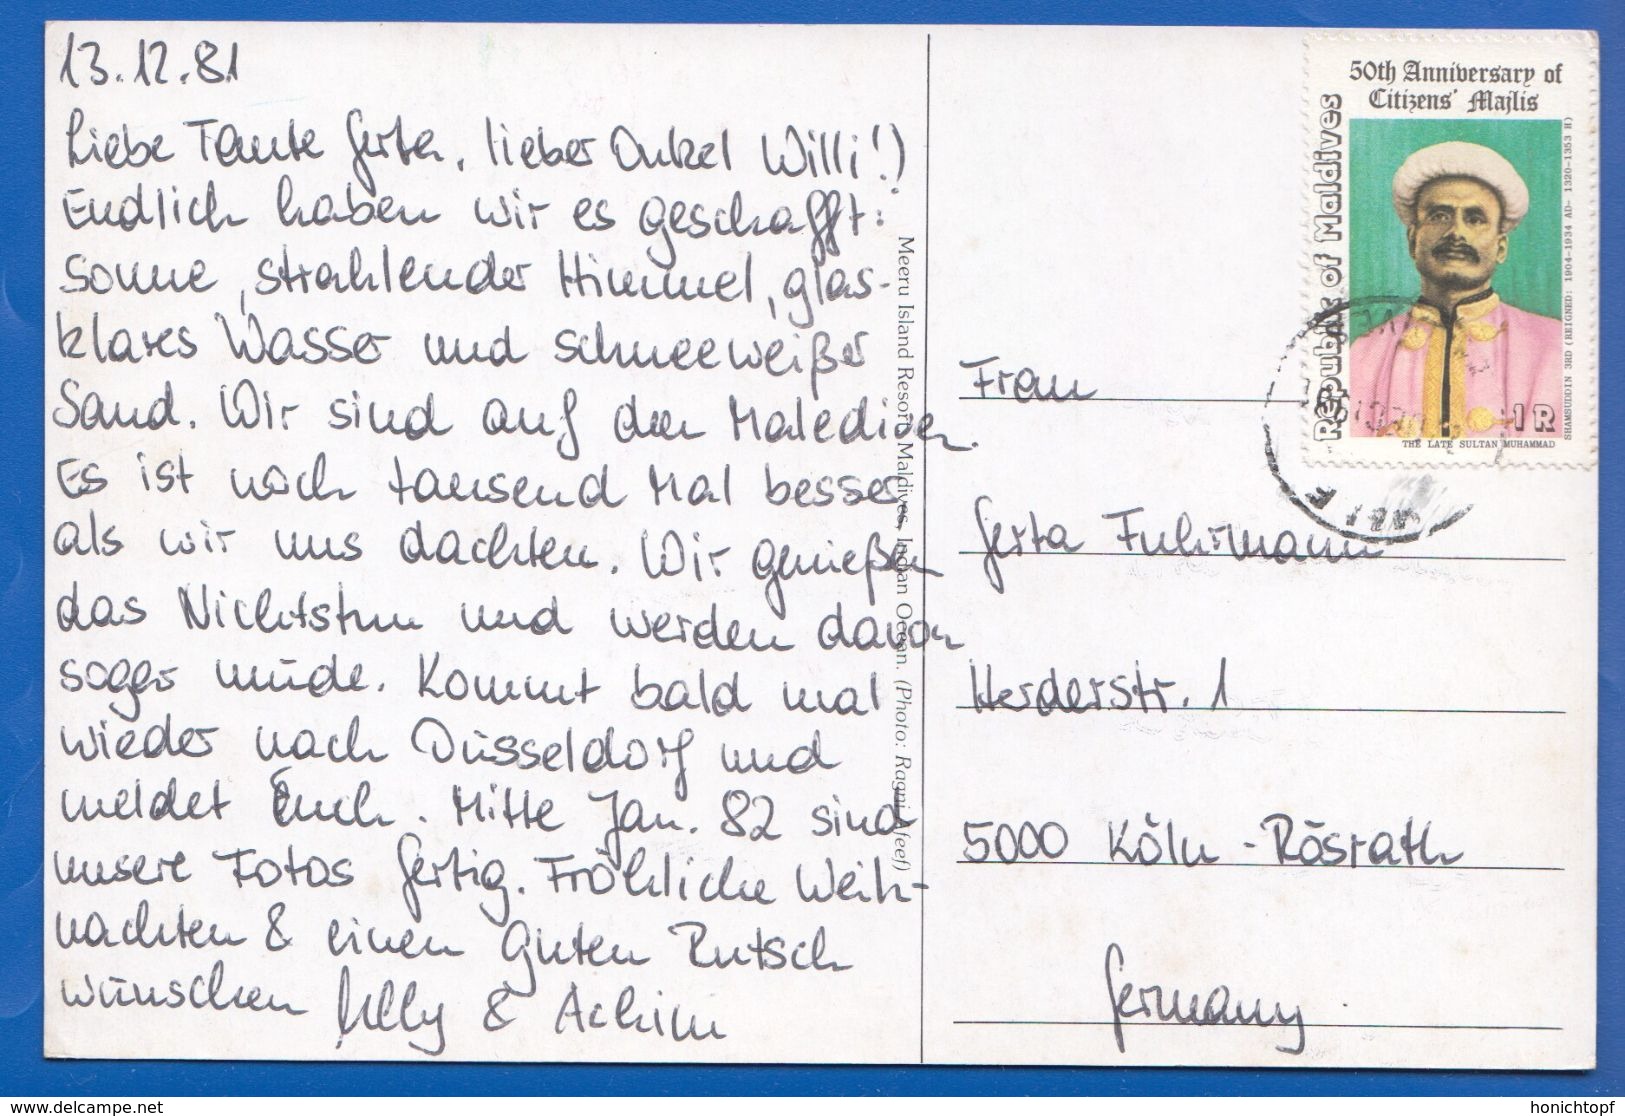 13.12.81
Liebe Tante Gerta, lieber Onkel Willi!)
Endlich haben wir es geschafft:
Sonne, strahlender Himmel, glas-
klares Wasser und schneeweißer
Sand. Wir sind auf den Malediven.
Es ist noch tausend Mal besser
als wir uns dachten. Wir genießen
das Nichtstun und werden davon
sogar müde. Kommt bald mal
wieder nach Düsseldorf und
meldet Euch. Mitte Jan. 82 sind
unsere Fotos fertig. Fröhliche Weih-
nachten & einen guten Rutsch
wünschen & Achim
Meeru Island Resort, Maldives, Indian Ocean. (Photo: Ragni Afeef)
50th Anniversary of
Citizens' Majlis
Republic of Maldives
SHAMSUDDIN 3RD (REIGNED: 1904-1934 AD- 1320-1353 H)
1 R
THE LATE SULTAN MUHAMMAD
Frau
Gerta Fuhrmann
Herderstr. 1
5000 Köln - Rösrath
Germany
www.delcampe.net
honichtopf